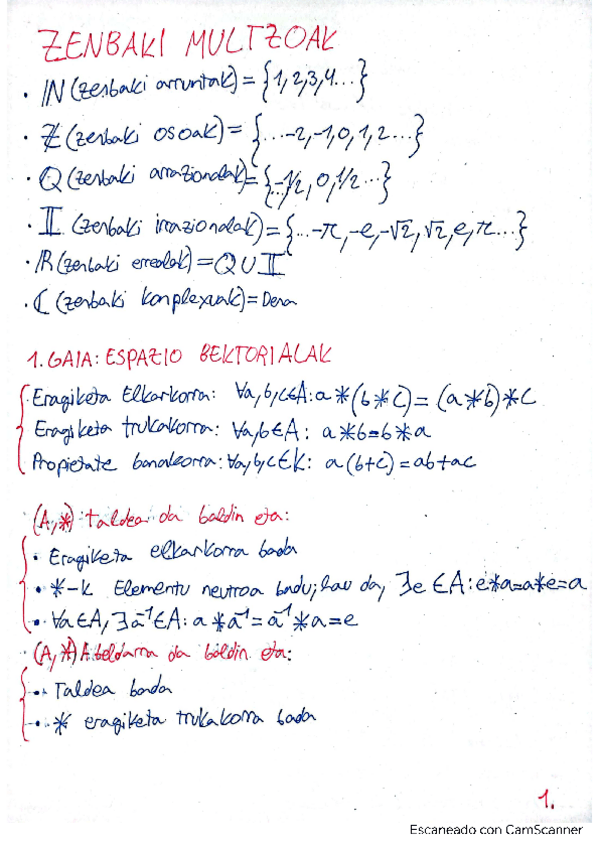 ZENBAKI MULTZOAK
· ℕ (zenbaki arruntak) = {1,2,3,4...}
· ℤ (zenbaki osoak) = {...-2,-1,0,1,2...}
· ℚ (zenbaki arrazionalak) = {...-1/2, 0, 1/2...}
· 𝕀 (zenbaki irrazionalak) = {...-π,-e,-√2,√2,e,π...}
· ℝ (zenbaki errealak) = ℚ ∪ 𝕀
· ℂ (zenbaki konplexuak) = Dena
1. GAIA: ESPAZIO BEKTORIALAK
Eragiketa Elkarkorra: ∀a,b,c∈A: a*(b*c) = (a*b)*c
Eragiketa trukakorra: ∀a,b∈A: a*b=b*a
Propietate banakorra: ∀a,b,c∈K: a(b+c)=ab+ac
· (A,*) taldea da baldin eta:
· Eragiketa elkarkorra bada
· *-k Elementu neutroa badu; hau da, ∃e∈A: e*a=a*e=a
· ∀a∈A, ∃a⁻¹∈A: a*a⁻¹=a⁻¹*a=e
· (A,*) Abeldarra da baldin eta:
· Taldea bada
· * eragiketa trukakorra bada
1.
Escaneado con CamScanner